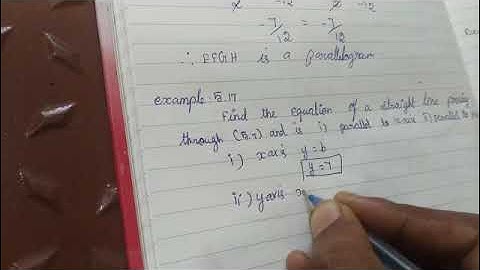 -7/12 = -7/12
∴ EFGH is a parallelogram
example 5.17
Find the equation of a straight line passing
through (5,7) and is i) parallel to x axis ii) parallel to
i) x axis y = b
y = 7
ii) y axis